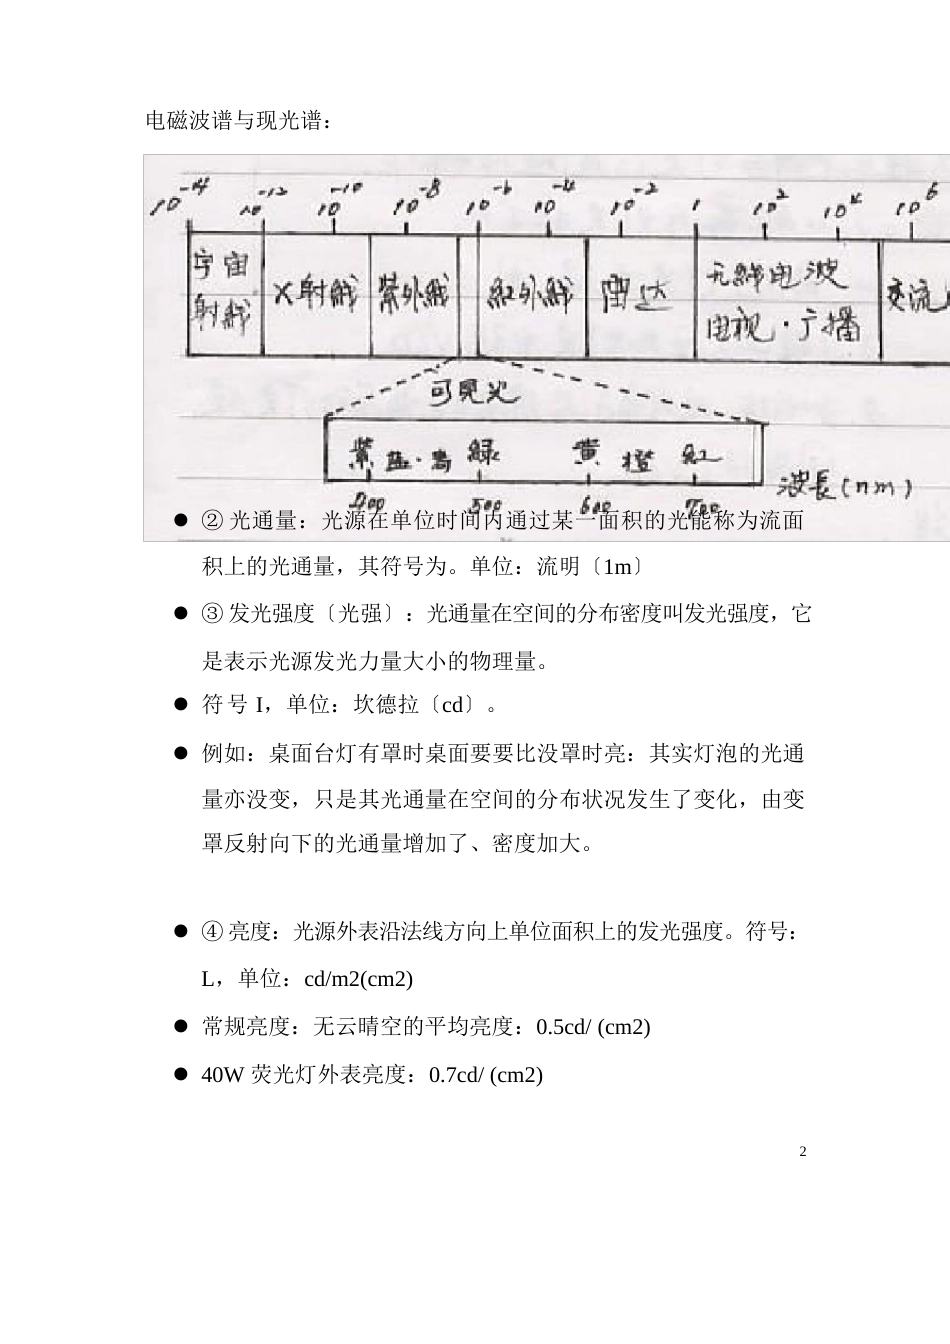 电磁波谱与现光谱：
10-14 10-12 10-10 10-8 10-6 10-4 10-2 1 102 104 106
宇宙射线 X射线 紫外线 红外线 雷达 无線电波 电视·广播 交流
可见光
紫 蓝·青 緑 黄 橙 红
400 500 600 700 波長(nm)
● ② 光通量：光源在单位时间内通过某一面积的光能称为流面
积上的光通量，其符号为。单位：流明〔1m〕
● ③ 发光强度〔光强〕：光通量在空间的分布密度叫发光强度，它
是表示光源发光力量大小的物理量。
● 符 号 I，单位：坎德拉〔cd〕。
● 例如：桌面台灯有罩时桌面要要比没罩时亮：其实灯泡的光通
量亦没变，只是其光通量在空间的分布状况发生了变化，由变
罩反射向下的光通量增加了、密度加大。
● ④ 亮度：光源外表沿法线方向上单位面积上的发光强度。符号：
L，单位：cd/m2(cm2)
● 常规亮度：无云晴空的平均亮度：0.5cd/ (cm2)
● 40W 荧光灯外表亮度：0.7cd/ (cm2)
2